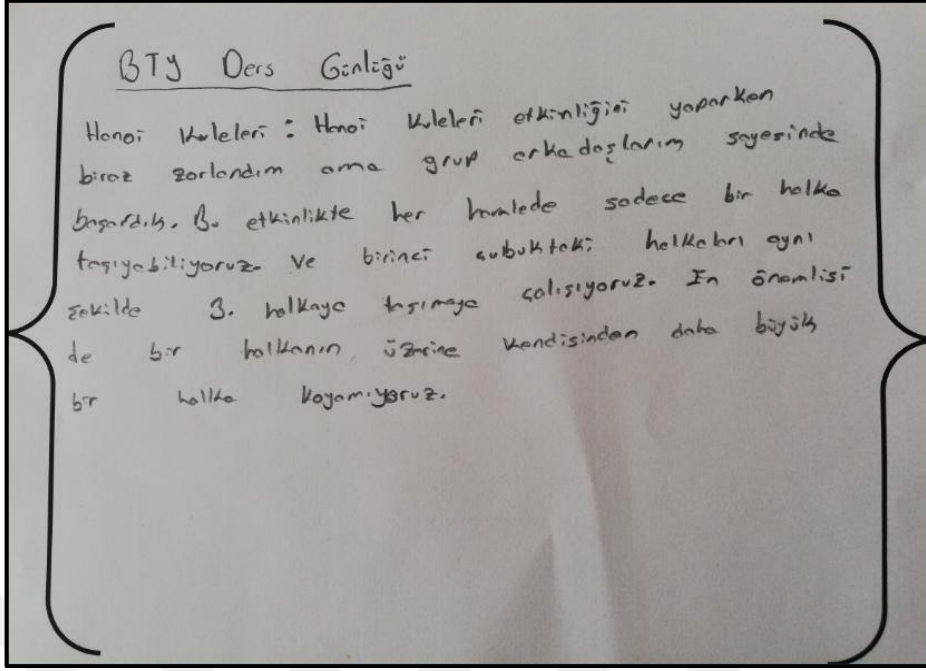 BTY Ders Günlüğü
Hanoi Kuleleri : Hanoi Kuleleri etkinliğini yaparken
biraz zorlandım ama grup arkadaşlarım sayesinde
başardık. Bu etkinlikte her hamlede sadece bir halka
taşıyabiliyoruz. Ve birinci çubuktaki halkaları aynı
şekilde 3. halkaya taşımaya çalışıyoruz. En önemlisi
de bir halkanın üzerine kendisinden daha büyük
bir halka koyamıyoruz.